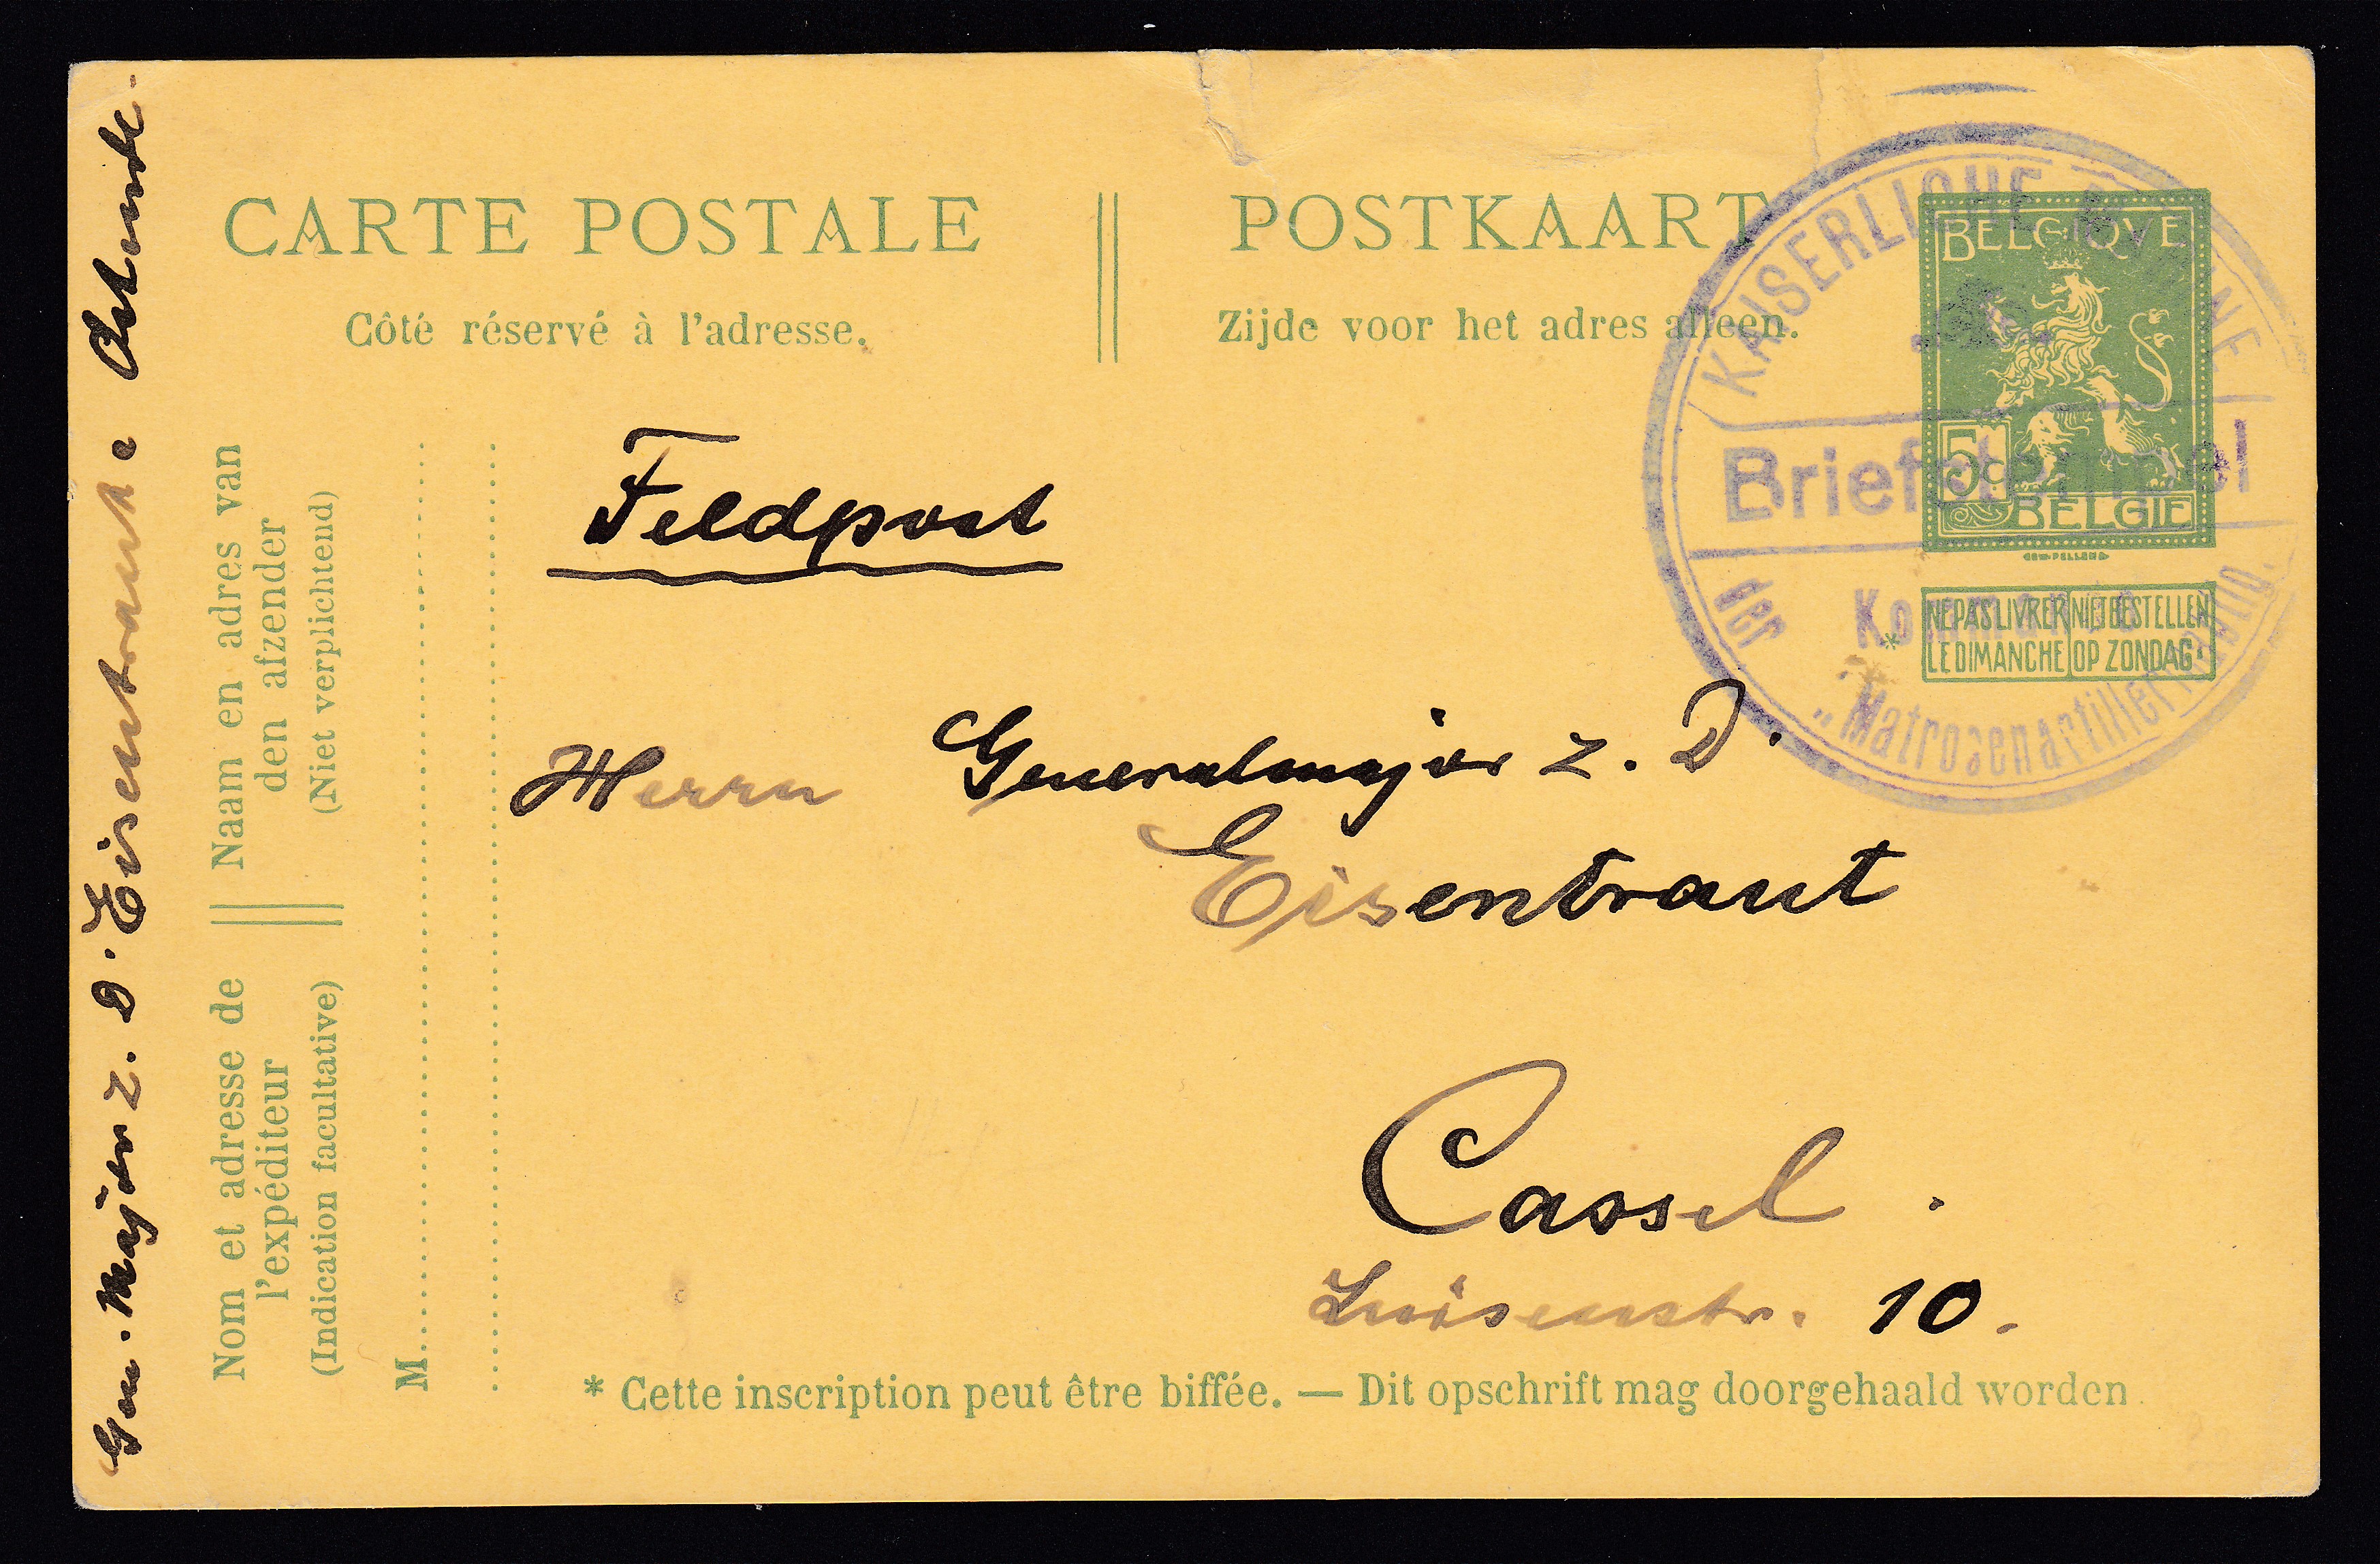 CARTE POSTALE
POSTKAART
Côté réservé à l'adresse.
Zijde voor het adres alleen.
BELGIQVE
5c
BELGIE
NE PAS LIVRER LE DIMANCHE
NIET BESTELLEN OP ZONDAG
*
KAISERLICHE MARINE
Briefstempel
der
Kommando
Matrosenartillerie
Feldpost
Herrn Generalmajor z. D.
Eisentraut
Cassel.
Luisenstr. 10.
* Cette inscription peut être biffée. — Dit opschrift mag doorgehaald worden
Nom et adresse de l'expéditeur
(Indication facultative)
Naam en adres van den afzender
(Niet verplichtend)
M
Gen. Major z. D. Eisentraut